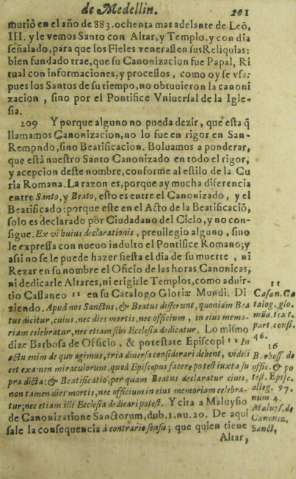 de Medellin. 201
murió en el año de 883. ochenta mas adelante de Leō
III. y le vemos Santo con Altar, y Templo, y con dia
señalado, para que los Fieles venerassen sus Reliquias:
bien fundado trae, que su Canonizacion fue Papal, Ri
tual con informaciones, y processos, como oy se vsa:
pues los Santos de su tiempo, no obtuuieron la canoni
zacion, sino por el Pontifice Vniuersal de la Igle-
sia.
209 Y porque alguno no pueda dezir, que esta q̃
llamamos Canonizacion, no lo fue en rigor en San-
Rempndo, sino Beatificacion. Boluamos a ponderar,
que està nuestro Santo Canonizado en todo el rigor,
y acepcion deste nombre, conforme al estilo de la Cu
ria Romana. La razon es, porque ay mucha diferencia
entre Santo, y Beato, esto es entre el Canonizado, y el
Beatificado: porque este en el Acto de la Beatificaciō,
solo es declarado por Ciudadano del Cielo, y no con-
sigue. Ex vi huius declarationis, preuilegio alguno, sino
le expressa con nueuo indulto el Pontifice Romano; y
assi no se le puede hazer fiesta el dia de su muerte, ni
Rezar en su nombre el Oficio de las horas Canonicas,
ni dedicarle Altares, ni erigirle Templos, como aduir-
tio Cassaneo 11 en su Catalogo Gloriæ Mundi. Di
ziendo. Apud nos Sanctus, & Beatus differunt, quoniam Bea
tus dicitur, cuius, nec dies mortis, nec officium, in eius memo-
riam celebratur, nec etiam sibi Ecclesia dedicatur. Lo mismo
dize Barbosa de Officio, & potestate Episcopi 16 In
actu enim de quo agimus, tria diuersa considerari debent, videli
cet examen miraculorum, quod Episcopus facere potest iuxta su
pra dicta: & Beatificatio, per quam Beatus declaratur ciuis,
non tamen dies mortis, nec officium in eius memoriam celebra-
tur; nec etiam illi Ecclesia dedicari potest. Y cita a Maluysio
de Canonizatione Sanctorum, dub. 1. nu. 20. De aqui
sale la consequencia à contrario sensu; que quien tiene
Altar,
11
Casan. Ca
talog. glo.
mūd. tract.
part. consi.
46.
16
Barbos. de
offic. & po
test. Episc.
alleg. 97.
num. 4.
Maluys. de
Canoniza.
Sanct.